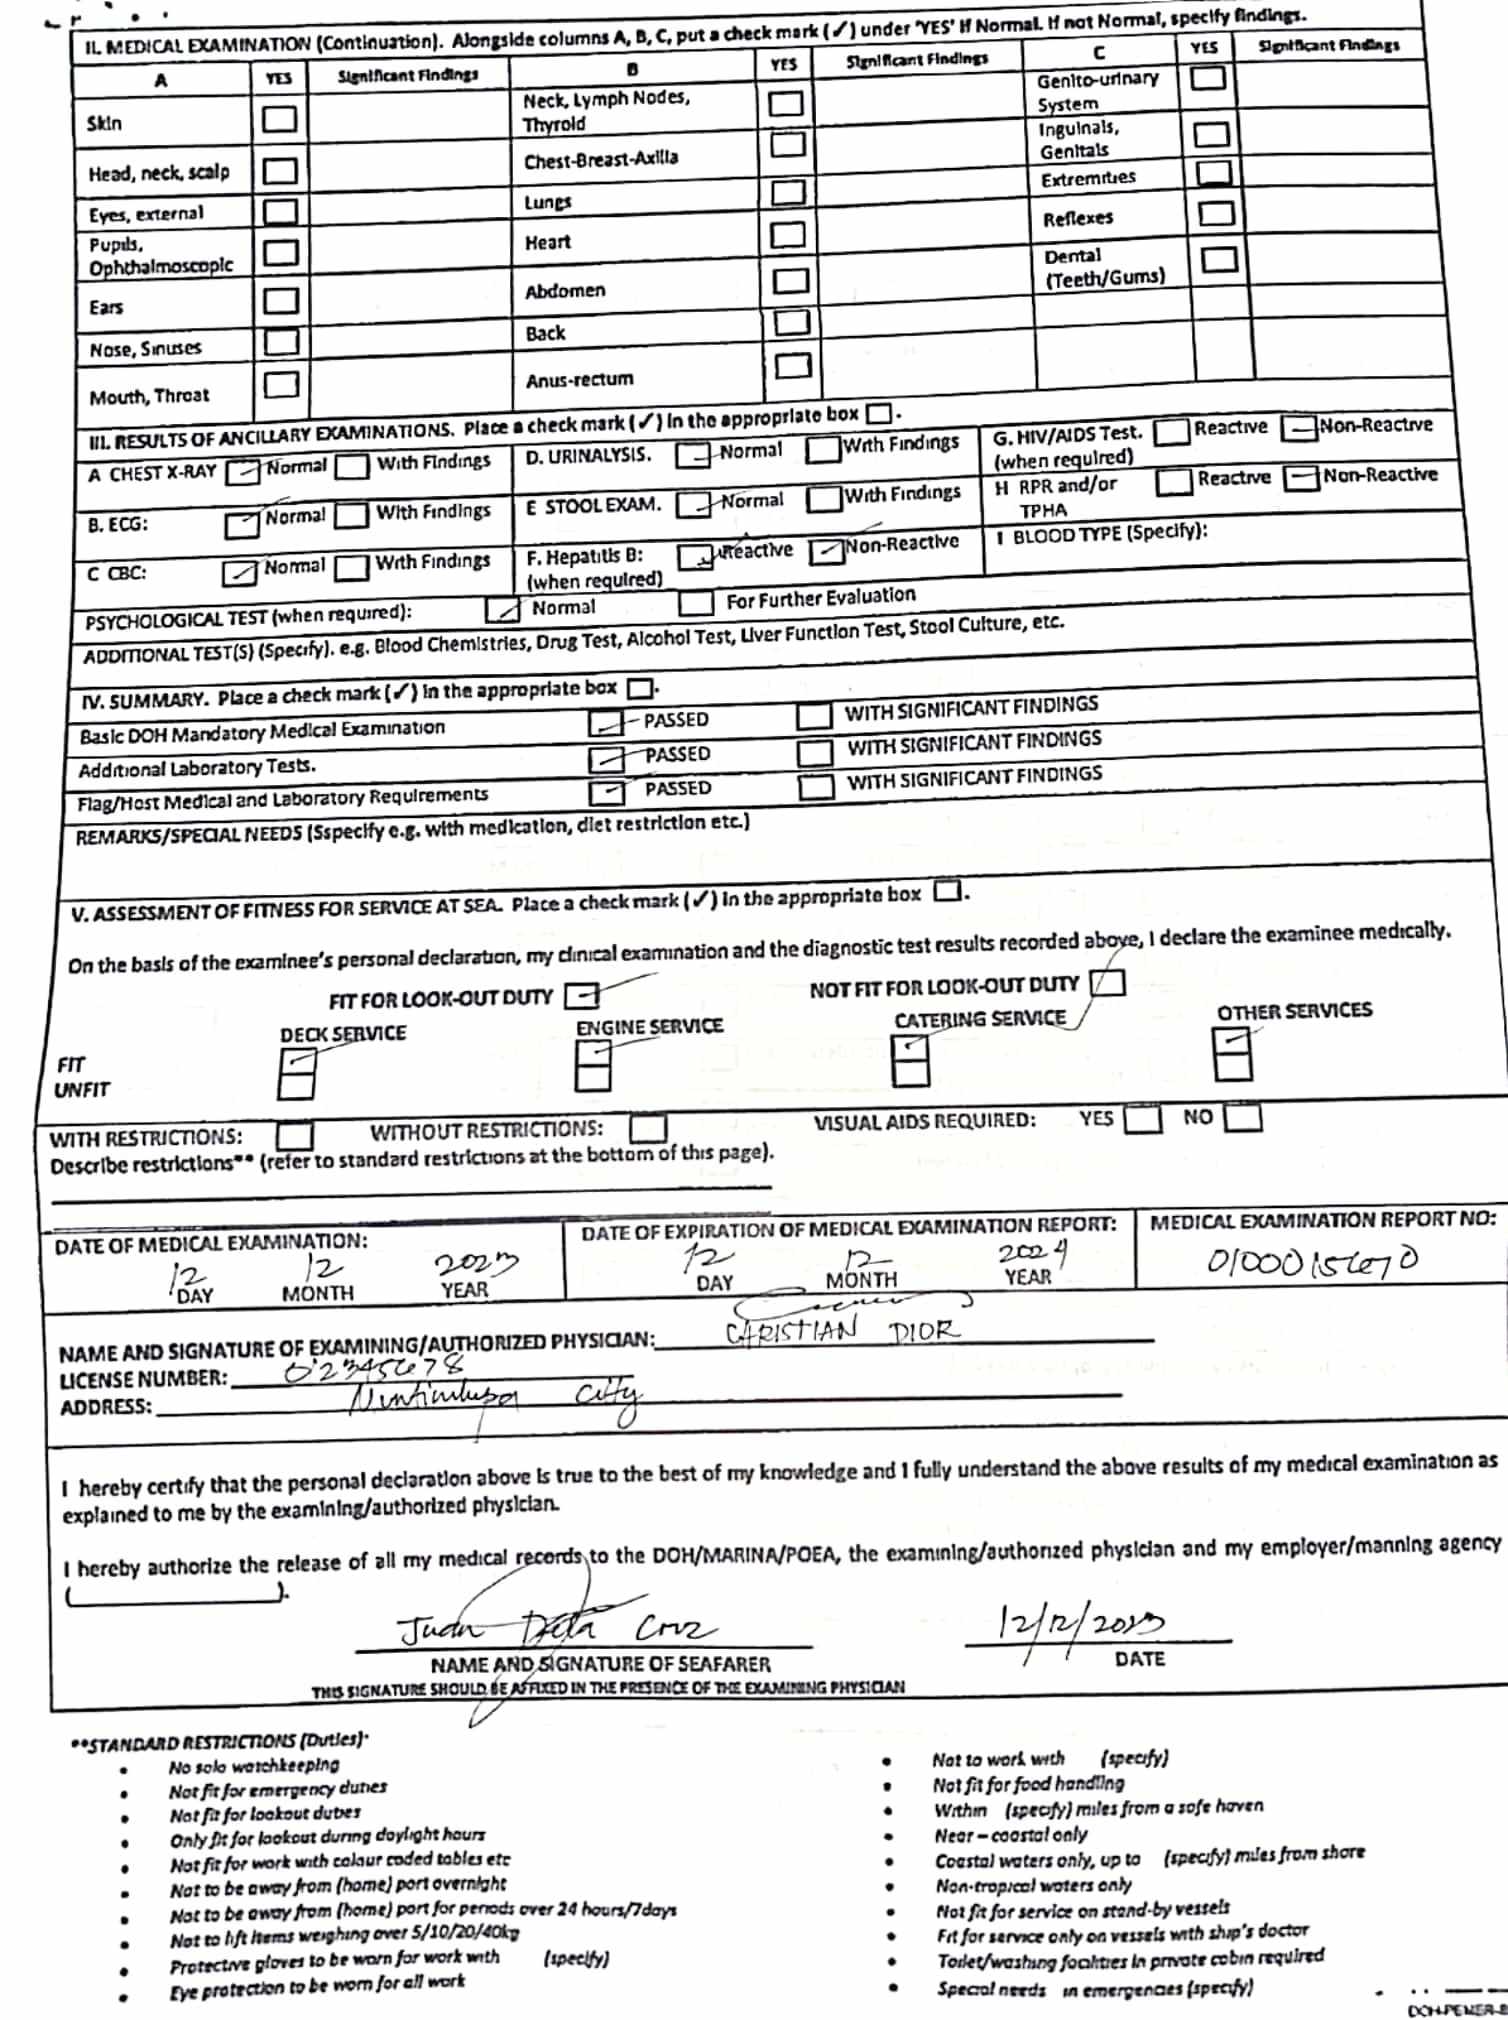 II. MEDICAL EXAMINATION (Continuation). Alongside columns A, B, C, put a check mark (✓) under 'YES' if Normal. If not Normal, specify findings.
A YES Significant Findings B YES Significant Findings C YES Significant Findings
Skin Neck, Lymph Nodes, Thyroid Genito-urinary System
Head, neck, scalp Chest-Breast-Axilla Inguinals, Genitals
Eyes, external Lungs Extremities
Pupils, Ophthalmoscopic Heart Reflexes
Ears Abdomen Dental (Teeth/Gums)
Nose, Sinuses Back
Mouth, Throat Anus-rectum
III. RESULTS OF ANCILLARY EXAMINATIONS. Place a check mark (✓) in the appropriate box □.
A CHEST X-RAY Normal With Findings D. URINALYSIS. Normal With Findings G. HIV/AIDS Test. (when required) Reactive Non-Reactive
B. ECG: Normal With Findings E STOOL EXAM. Normal With Findings H RPR and/or TPHA Reactive Non-Reactive
C CBC: Normal With Findings F. Hepatitis B: (when required) Reactive Non-Reactive I BLOOD TYPE (Specify):
PSYCHOLOGICAL TEST (when required): Normal For Further Evaluation
ADDITIONAL TEST(S) (Specify). e.g. Blood Chemistries, Drug Test, Alcohol Test, Liver Function Test, Stool Culture, etc.
IV. SUMMARY. Place a check mark (✓) in the appropriate box □.
Basic DOH Mandatory Medical Examination PASSED WITH SIGNIFICANT FINDINGS
Additional Laboratory Tests. PASSED WITH SIGNIFICANT FINDINGS
Flag/Host Medical and Laboratory Requirements PASSED WITH SIGNIFICANT FINDINGS
REMARKS/SPECIAL NEEDS (Sspecify e.g. with medication, diet restriction etc.)
V. ASSESSMENT OF FITNESS FOR SERVICE AT SEA. Place a check mark (✓) in the appropriate box □.
On the basis of the examinee's personal declaration, my clinical examination and the diagnostic test results recorded above, I declare the examinee medically.
FIT FOR LOOK-OUT DUTY NOT FIT FOR LOOK-OUT DUTY
DECK SERVICE ENGINE SERVICE CATERING SERVICE OTHER SERVICES
FIT
UNFIT
WITH RESTRICTIONS: WITHOUT RESTRICTIONS: VISUAL AIDS REQUIRED: YES NO
Describe restrictions** (refer to standard restrictions at the bottom of this page).
DATE OF MEDICAL EXAMINATION: DATE OF EXPIRATION OF MEDICAL EXAMINATION REPORT: MEDICAL EXAMINATION REPORT NO:
12 12 2023 12 12 2024
DAY MONTH YEAR DAY MONTH YEAR
NAME AND SIGNATURE OF EXAMINING/AUTHORIZED PHYSICIAN: CHRISTIAN DIOR
LICENSE NUMBER: 02345678
ADDRESS: Muntinlupa City
I hereby certify that the personal declaration above is true to the best of my knowledge and I fully understand the above results of my medical examination as
explained to me by the examining/authorized physician.
I hereby authorize the release of all my medical records to the DOH/MARINA/POEA, the examining/authorized physician and my employer/manning agency
( ).
Juan Dela Cruz 12/12/2023
NAME AND SIGNATURE OF SEAFARER DATE
THIS SIGNATURE SHOULD BE AFFIXED IN THE PRESENCE OF THE EXAMINING PHYSICIAN
**STANDARD RESTRICTIONS (Duties)·
• No solo watchkeeping
• Not fit for emergency duties
• Not fit for lookout duties
• Only fit for lookout during daylight hours
• Not fit for work with colour coded tables etc
• Not to be away from (home) port overnight
• Not to be away from (home) port for periods over 24 hours/7days
• Not to lift items weighing over 5/10/20/40kg
• Protective gloves to be worn for work with (specify)
• Eye protection to be worn for all work
• Not to work with (specify)
• Not fit for food handling
• Within (specify) miles from a safe haven
• Near – coastal only
• Coastal waters only, up to (specify) miles from shore
• Non-tropical waters only
• Not fit for service on stand-by vessels
• Fit for service only on vessels with ship's doctor
• Toilet/washing facilities in private cabin required
• Special needs in emergencies (specify)